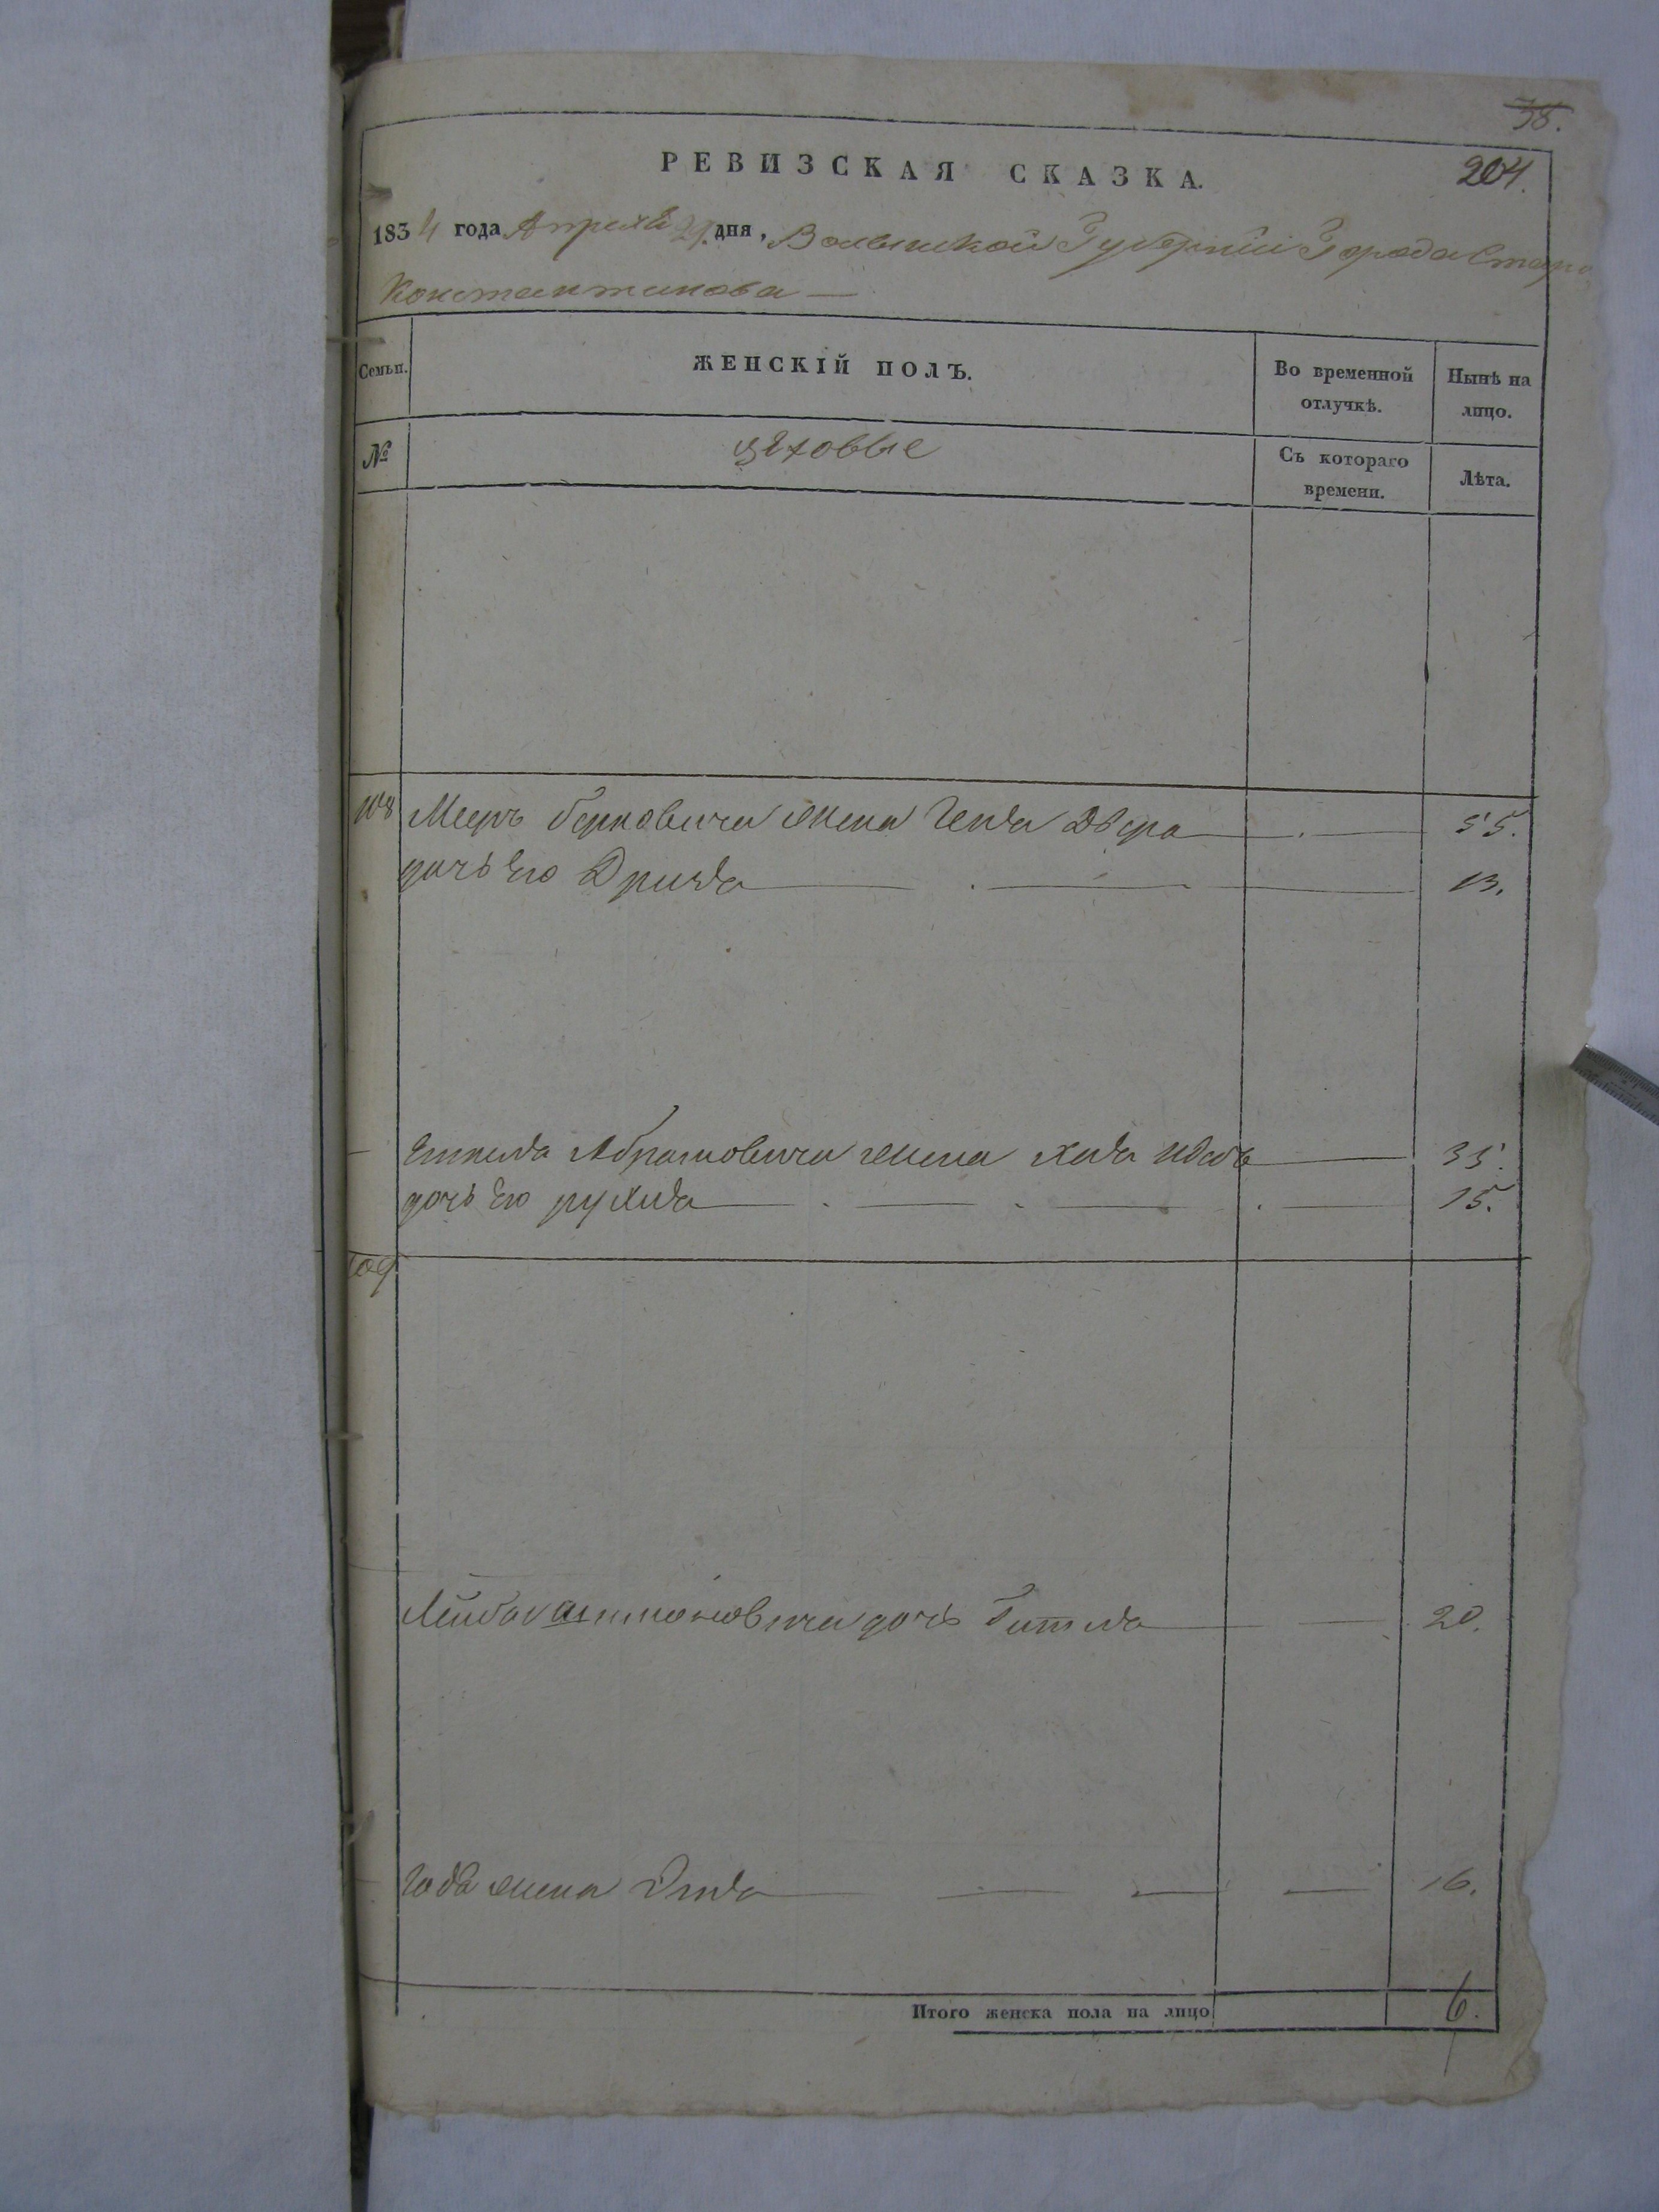 38.
РЕВИЗСКАЯ СКАЗКА.
204.
1834 года Апреля дня, Волынской Губернии Города Старо
Константинова —
Семьи. ЖЕНСКІЙ ПОЛЪ. Во временной отлучкѣ. Нынѣ на лицо.
№ цеховые Съ котораго времени. Лѣта.
108 Мееръ Берковича жена Генда Двера 55.
дочь Его Дризда 13.
Абрамовича жена Хада 35.
дочь Его рухлда 15.
109
Лейба дочь Гитлда 20.
жена 16.
Итого женска пола на лицо 6.